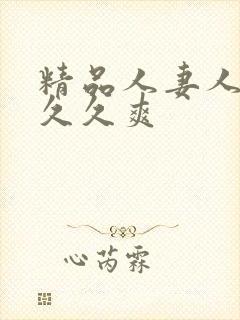 精品人妻人
久久爽
心芮霖